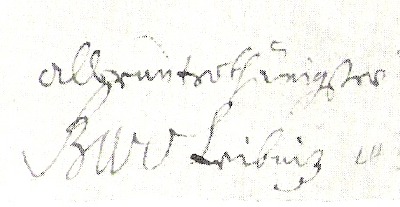 allerunterthänigster
GWvLeibniz m